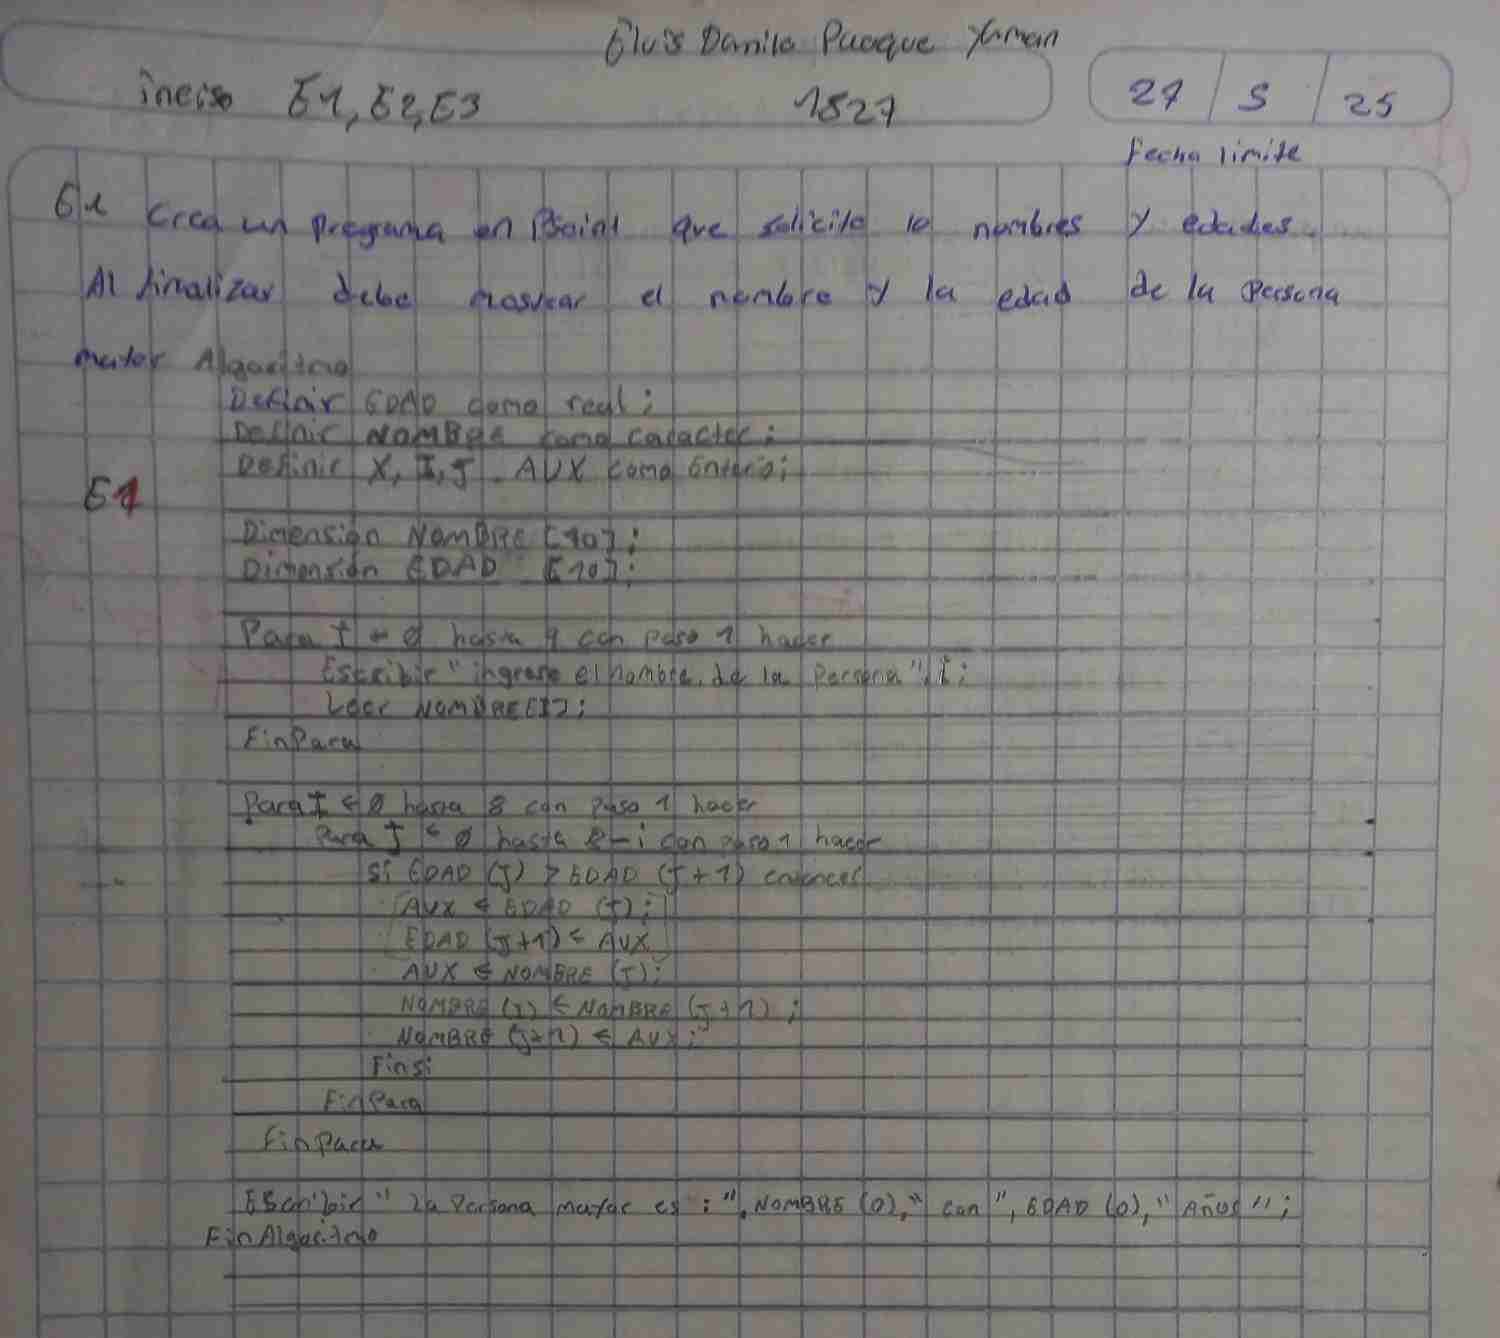 Elvis Danilo Puaque Xaman
inciso E1, E2, E3 1827 27 / 5 / 25
Fecha limite
E1 Crea un programa en Pseint que solicite 10 nombres y edades.
Al finalizar debe mostrar el nombre y la edad de la persona
mayor Algoritmo
Definir EDAD como real;
Definir NOMBRE como caracter;
Definir X, I, J. AUX como Entero;
E1
Dimensión NOMBRE [10];
Dimensión EDAD [10];
Para I ← 0 hasta 9 con paso 1 hacer
Escribir "ingrese el nombre de la persona", i;
Leer NOMBRE[I];
FinPara
Para I ← 0 hasta 8 con paso 1 hacer
Para J ← 0 hasta 8-i con paso 1 hacer
Si EDAD (J) > EDAD (J+1) entonces
AUX ← EDAD (J);
EDAD (J+1) ← AUX
AUX ← NOMBRE (J);
NOMBRE (J) ← NOMBRE (J+1);
NOMBRE (J+1) ← AUX;
Finsi
FinPara
FinPara
Escribir "La Persona mayor es :", NOMBRE (0), "con", EDAD (0), "Años";
FinAlgoritmo